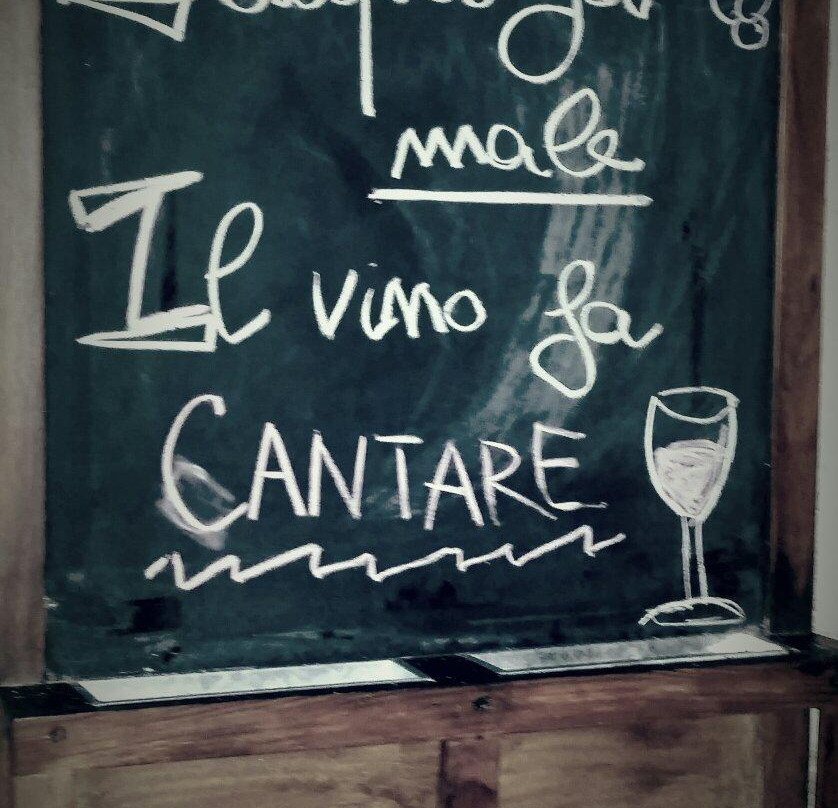 male
Il vino fa
CANTARE